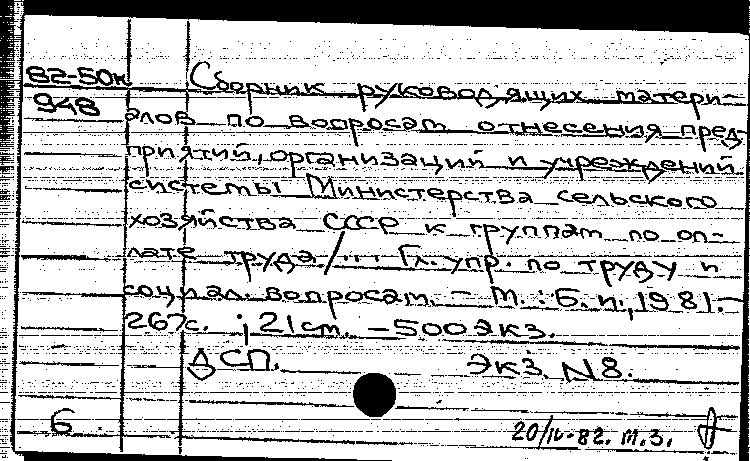 82-50к Сборник руководящих матери-
948 алов по вопросам отнесения пред-
приятий, организаций и учреждений
системы Министерства сельского
хозяйства СССР к группам по оп-
лате труда /... Гл. упр. по труду и
социал. вопросам. – М.: Б. и., 1981. –
267с. ; 21см. – 500 экз.
ДСП. Экз. N8.
6 20/IV-82. т.з.